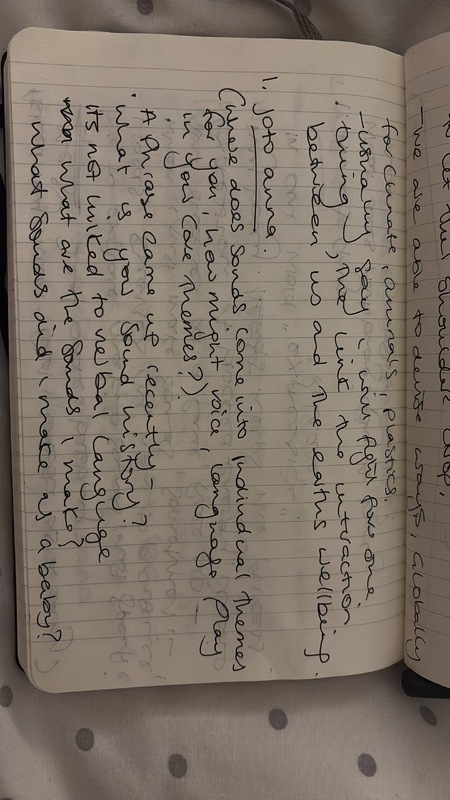 to let their shoulders drop,
- we are able to devise ways, globally
for climate, animals, plastics.
- usually say, i will fight for one
thing, the link the interaction
between us and the earths wellbeing.
1. Joto anna.
(where does sonds come into individual themes
for you, how might voice, language play
in your core themes?)
A phrase came up recently -
'what is your sound history?
its not linked to verbal language
what are the sonds i make?
what sonds did i make as a baby?